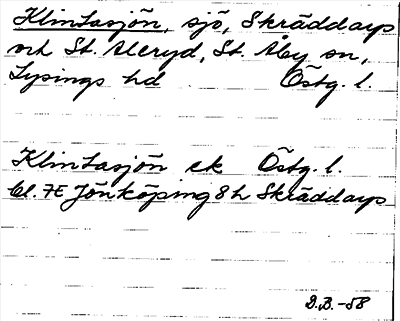 Klintasjön, sjö, Skräddarps
och St. Åleryd, St. Åby sn,
Lysings hd Östg. l.
Klintasjön ek Östg. l.
bl. 7E Jönköping 8h Skräddarps
D.B.-58